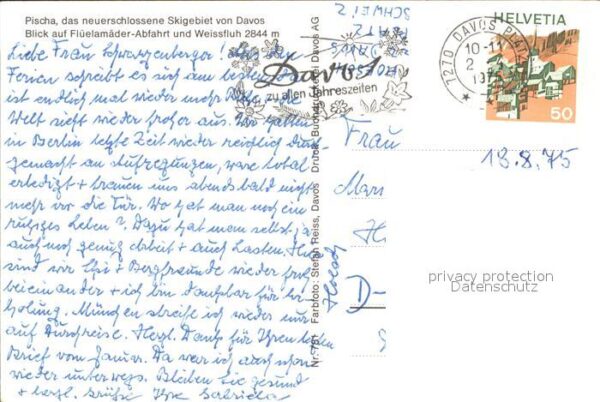 Pischa, das neuerschlossene Skigebiet von Davos
Blick auf Flüelamäder-Abfahrt und Weissfluh 2844 m
Liebe Frau Schwarzenberger!
Ferien schreibt es sich am besten
ist endlich mal wieder mehr Ruhe, die
Welt sieht wieder froher aus. Wir hatten
in Berlin letzte Zeit wieder reichlich durch-
gemacht an Aufregungen, ware total
erledigt + trauen uns abends bald nicht
mehr vor die Tür. Wo hat man noch ein
ruhiges Leben? Dazu hat man selbst ja
auch noch genug Arbeit + auch Lasten.
sind wir + Bergfreunde wieder
beieinander + ich bin dankbar für Er-
holung. München streife ich wieder nur
auf Durchreise. Herzl. Dank für Ihren lieben
Brief vom Januar. Da war ich auch schon
wieder unterwegs. Bleiben Sie gesund
+ herzl. Grüße Ihre Gabriela
Nr. 751 Farbfoto: Stefan Reiss, Davos Druck: Buchdruckerei Davos AG
SCHWEIZ
PLATZ
DAVOS
Davos
zu allen Jahreszeiten
7270 DAVOS PLATZ
10-11
HELVETIA
50
Frau
13.8.75
D-
privacy protection
Datenschutz